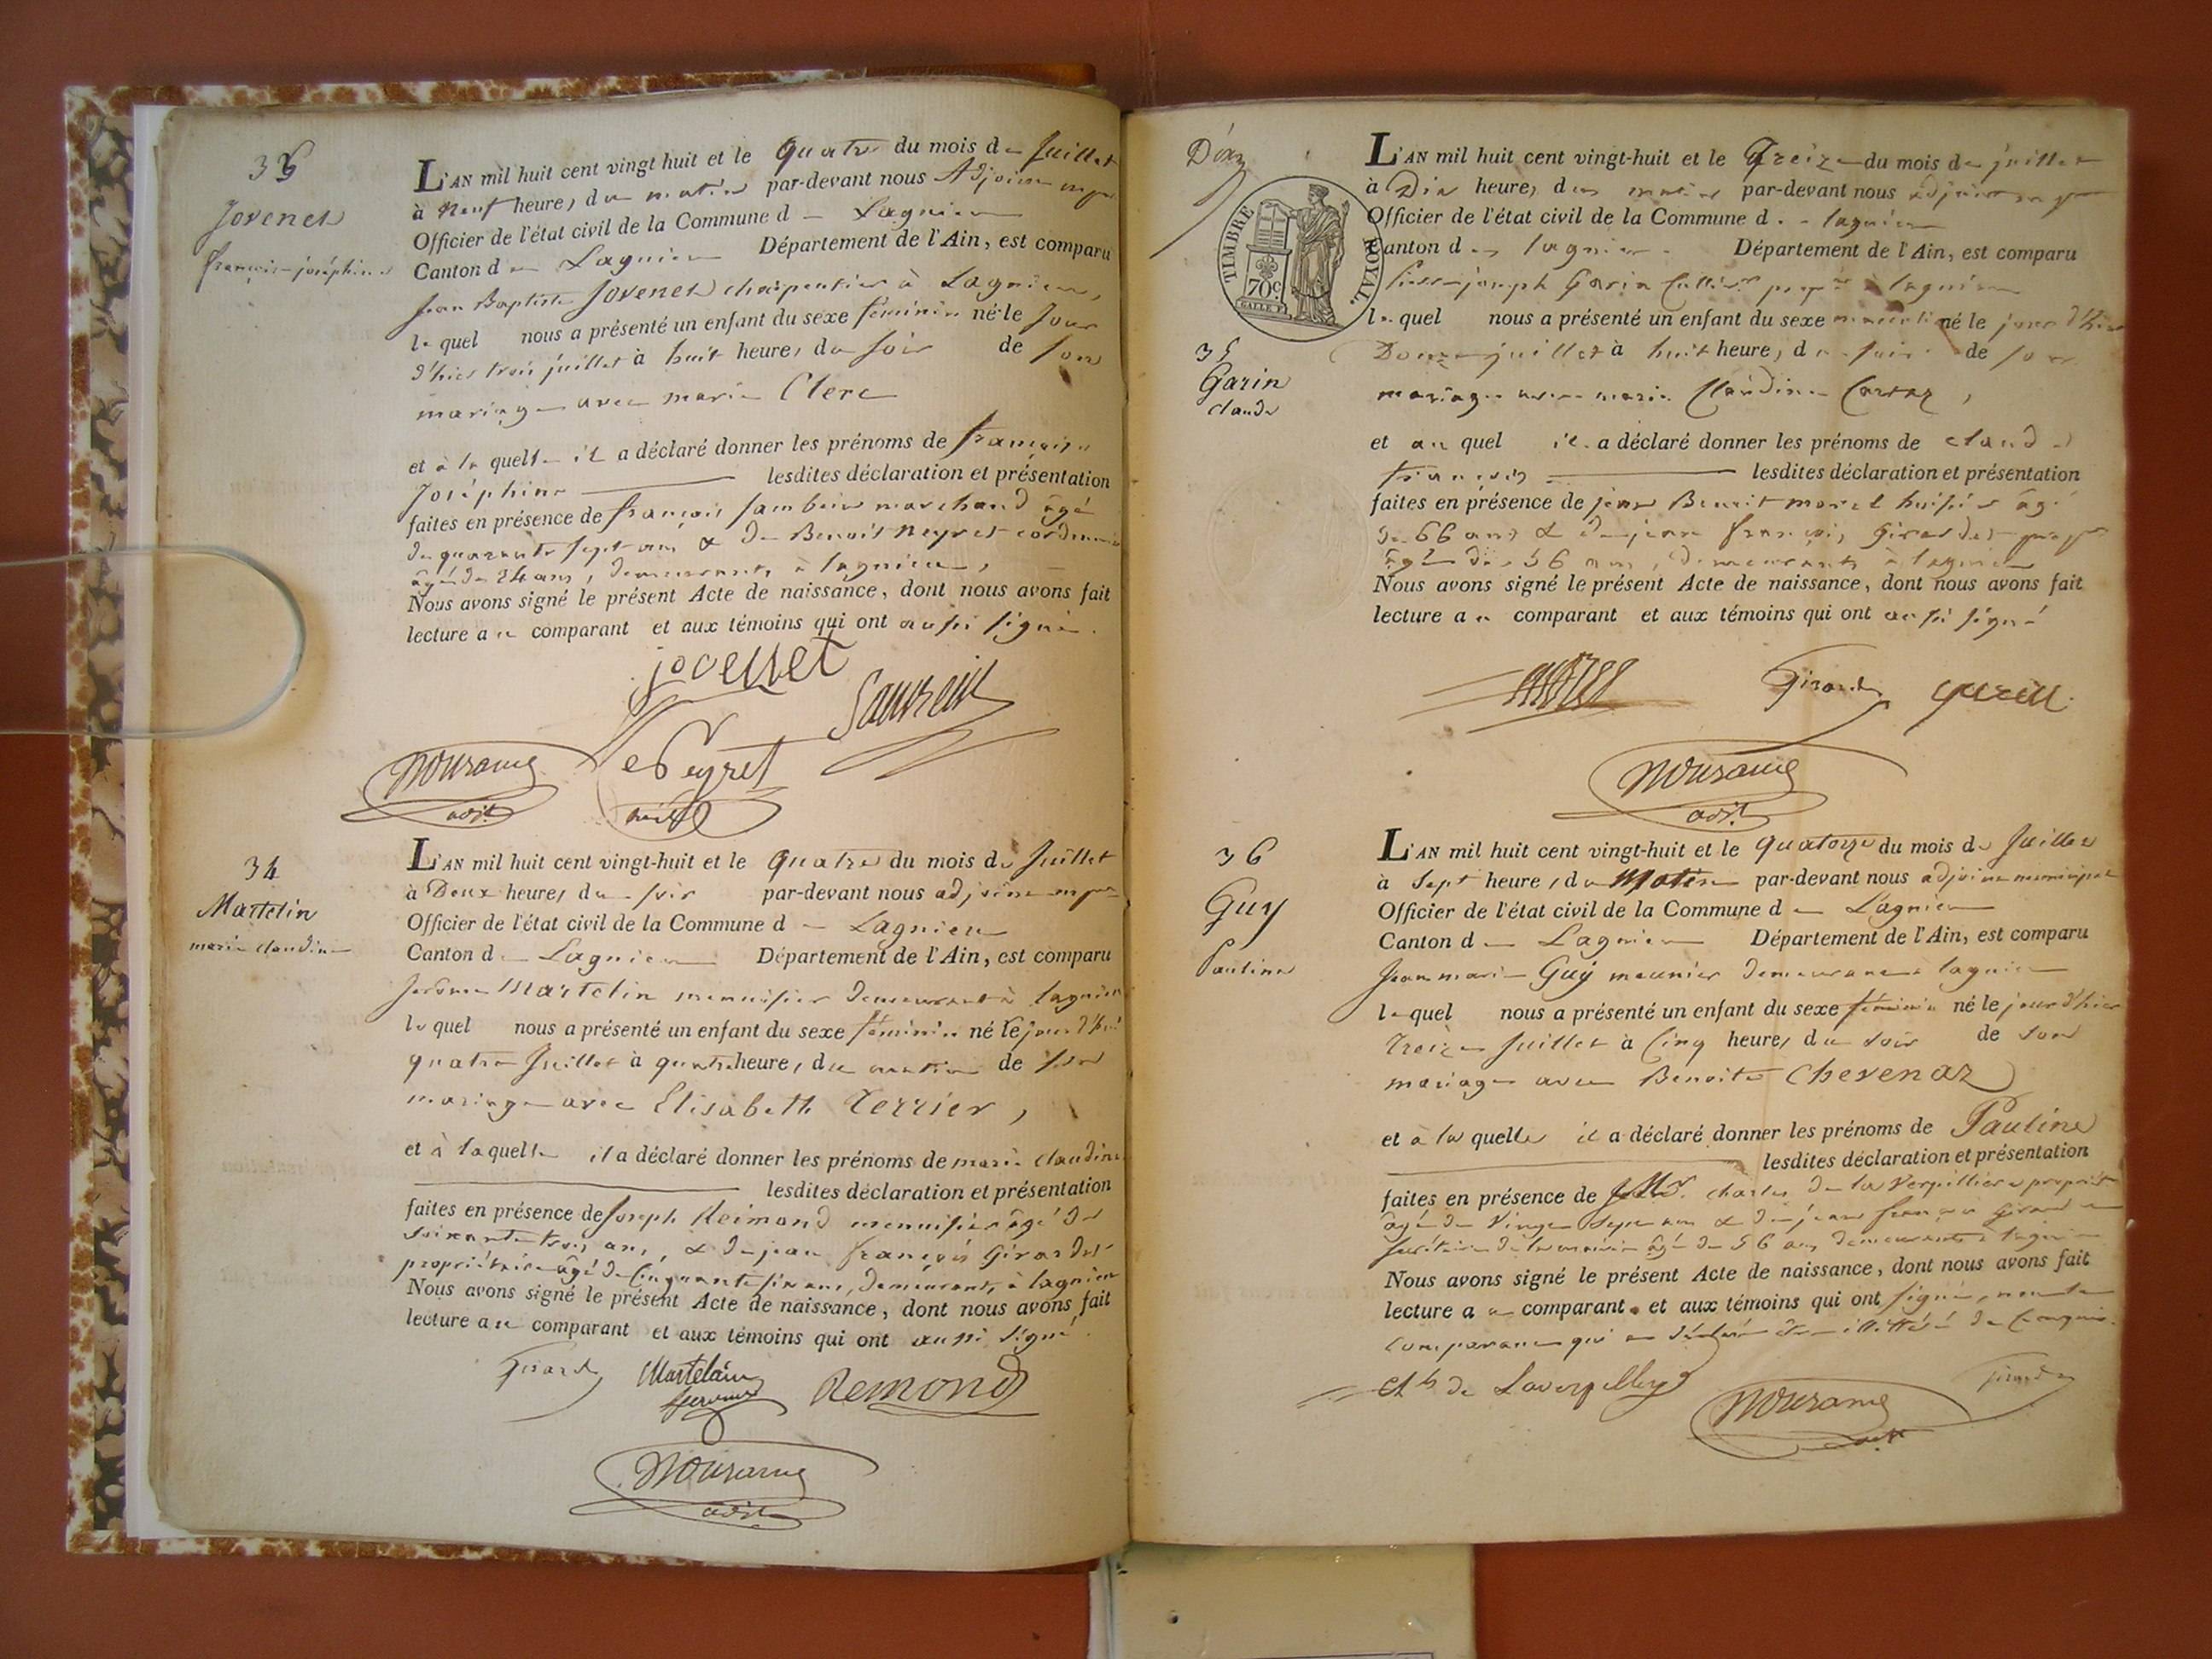 33
Jovenet
françoise joséphine
L'AN mil huit cent vingt huit et le quatre du mois de Juillet
à neuf heures du matin par-devant nous Adjoint
Officier de l'état civil de la Commune de Lagnieu
Canton de Lagnieu Département de l'Ain, est comparu
Jean Baptiste Jovenet charpentier à Lagnieu,
lequel nous a présenté un enfant du sexe féminin né le jour
d'hier trois juillet à huit heures du soir de son
mariage avec marie Clerc
et à laquelle il a déclaré donner les prénoms de françoise
Joséphine lesdites déclaration et présentation
faites en présence de françois marchand âgé
de quarante sept ans & de Benoit Neyret
âgé de 24 ans, demeurants à lagnieu,
Nous avons signé le présent Acte de naissance, dont nous avons fait
lecture au comparant et aux témoins qui ont aussi signé.
jovenet
34
Martelin
marie claudine
L'AN mil huit cent vingt-huit et le quatre du mois de Juillet
à Deux heures du soir par-devant nous adjoint
Officier de l'état civil de la Commune de Lagnieu
Canton de Lagnieu Département de l'Ain, est comparu
Jérôme Martelin menuisier demeurant à lagnieu
lequel nous a présenté un enfant du sexe féminin né le jour d'hui
quatre Juillet à quatre heures du matin de son
mariage avec Elisabeth Terrier,
et à laquelle il a déclaré donner les prénoms de marie claudine
lesdites déclaration et présentation
faites en présence de Joseph Reimond menuisier âgé de
soixante trois ans, & de jean françois Girardet
propriétaire âgé de Cinquante six ans, demeurants à lagnieu
Nous avons signé le présent Acte de naissance, dont nous avons fait
lecture au comparant et aux témoins qui ont aussi signé.
Martelin
Remond
adjt
TIMBRE ROYAL.
70c
35
Garin
claude
L'AN mil huit cent vingt-huit et le Treize du mois de juillet
à Dix heures du matin par-devant nous adjoint
Officier de l'état civil de la Commune de lagnieu
Canton de lagnieu Département de l'Ain, est comparu
joseph Garin à lagnieu
lequel nous a présenté un enfant du sexe masculin né le jour d'hier
Douze juillet à huit heures du soir de son
mariage avec marie Claudine
et auquel il a déclaré donner les prénoms de claude
françois lesdites déclaration et présentation
faites en présence de jean Benoit morel huissier âgé
de 66 ans & de jean françois Girardet
âgé de 56 ans, demeurants à lagnieu
Nous avons signé le présent Acte de naissance, dont nous avons fait
lecture au comparant et aux témoins qui ont aussi signé
adjt
36
Guy
Pauline
L'AN mil huit cent vingt-huit et le quatorze du mois de Juillet
à Sept heures du Matin par-devant nous adjoint municipal
Officier de l'état civil de la Commune de Lagnieu
Canton de Lagnieu Département de l'Ain, est comparu
Jean marie Guy meunier demeurant à lagnieu
lequel nous a présenté un enfant du sexe féminin né le jour d'hier
treize Juillet à Cinq heures du soir de son
mariage avec Benoite Chevenaz
et à laquelle il a déclaré donner les prénoms de Pauline
lesdites déclaration et présentation
faites en présence de charles de la Verpillière
âgé de vingt sept ans & de jean françois Girardet
secrétaire de la mairie âgé de 56 ans demeurants à lagnieu
Nous avons signé le présent Acte de naissance, dont nous avons fait
lecture au comparant et aux témoins qui ont signé, non le
comparant qui a déclaré être illitéré de ce enquis.